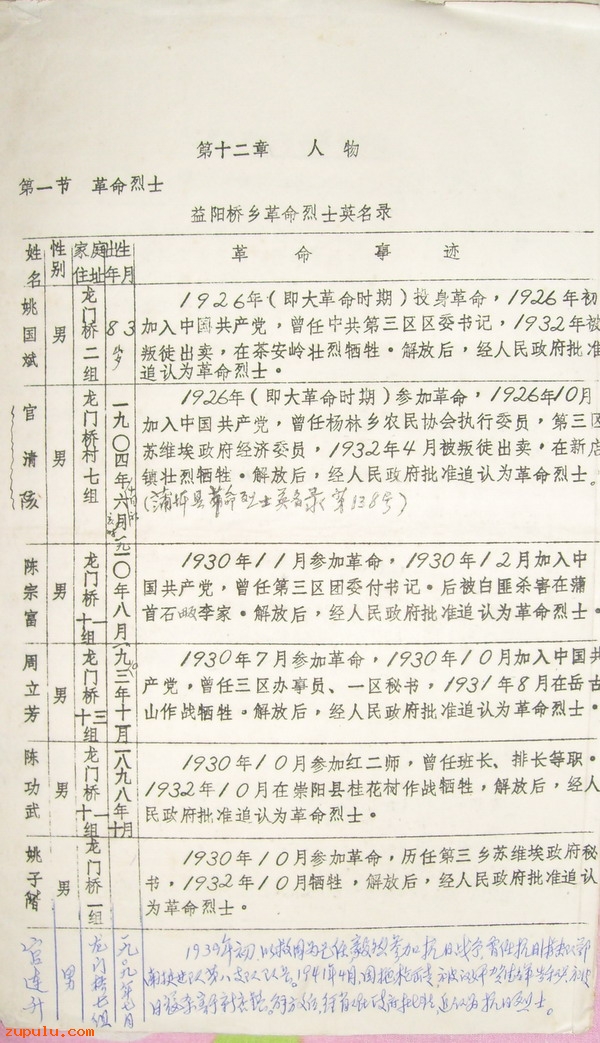 第十二章 人物
第一节 革命烈士
益阳桥乡革命烈士英名录
姓名 性别 家庭住址 出生年月 革命事迹
姚国斌 男 龙门桥二组 83岁
1926年(即大革命时期)投身革命,1926年初
加入中国共产党,曾任中共第三区区委书记,1932年被
叛徒出卖,在茶安岭壮烈牺牲。解放后,经人民政府批准
追认为革命烈士。
官清 男 龙门桥村七组 一九〇四年六月
1926年(即大革命时期)参加革命,1926年10月
加入中国共产党,曾任杨林乡农民协会执行委员,第三区
苏维埃政府经济委员,1932年4月被叛徒出卖,在新店
镇壮烈牺牲。解放后,经人民政府批准追认为革命烈士。
(蒲圻县革命烈士英名录第138号)
陈宗富 男 龙门桥十一组 一九一〇年八月
1930年11月参加革命,1930年12月加入中
国共产党,曾任第三区团委付书记。后被白匪杀害在蒲
首石畈李家。解放后,经人民政府批准追认为革命烈士。
周立芳 男 龙门桥十三组 年十一月
1930年7月参加革命,1930年10月加入中国共
产党,曾任三区办事员、一区秘书,1931年8月在岳古
山作战牺牲。解放后,经人民政府批准追认为革命烈士。
陈功武 男 龙门桥十一组 一八九八年十月
1930年10月参加红二师,曾任班长、排长等职。
1932年10月在崇阳县桂花村作战牺牲,解放后,经人
民政府批准追认为革命烈士。
姚子 男 龙门桥一组
1930年10月参加革命,历任第三乡苏维埃政府秘
书,1932年10月牺牲,解放后,经人民政府批准追认
为革命烈士。
官连升 男 龙门桥七组 一九一九年七月
1939年初,以救国为己任毅然参加抗日战争,曾任抗日
南挺进队第八支队队员。1941年4月,因
日寇杀害于新店。解放后,经政府批准,追认为抗日烈士。
zupulu.com